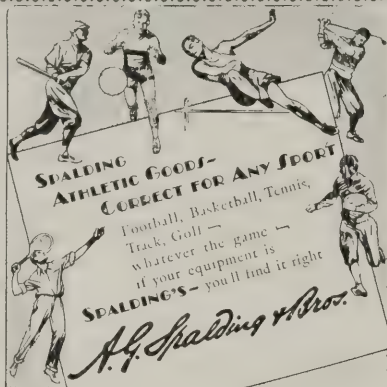 SPALDING
ATHLETIC GOODS–
CORRECT FOR ANY SPORT
Football, Basketball, Tennis,
Track, Golf –
whatever the game –
if your equipment is
SPALDING'S – you'll find it right
A.G. Spalding & Bros.